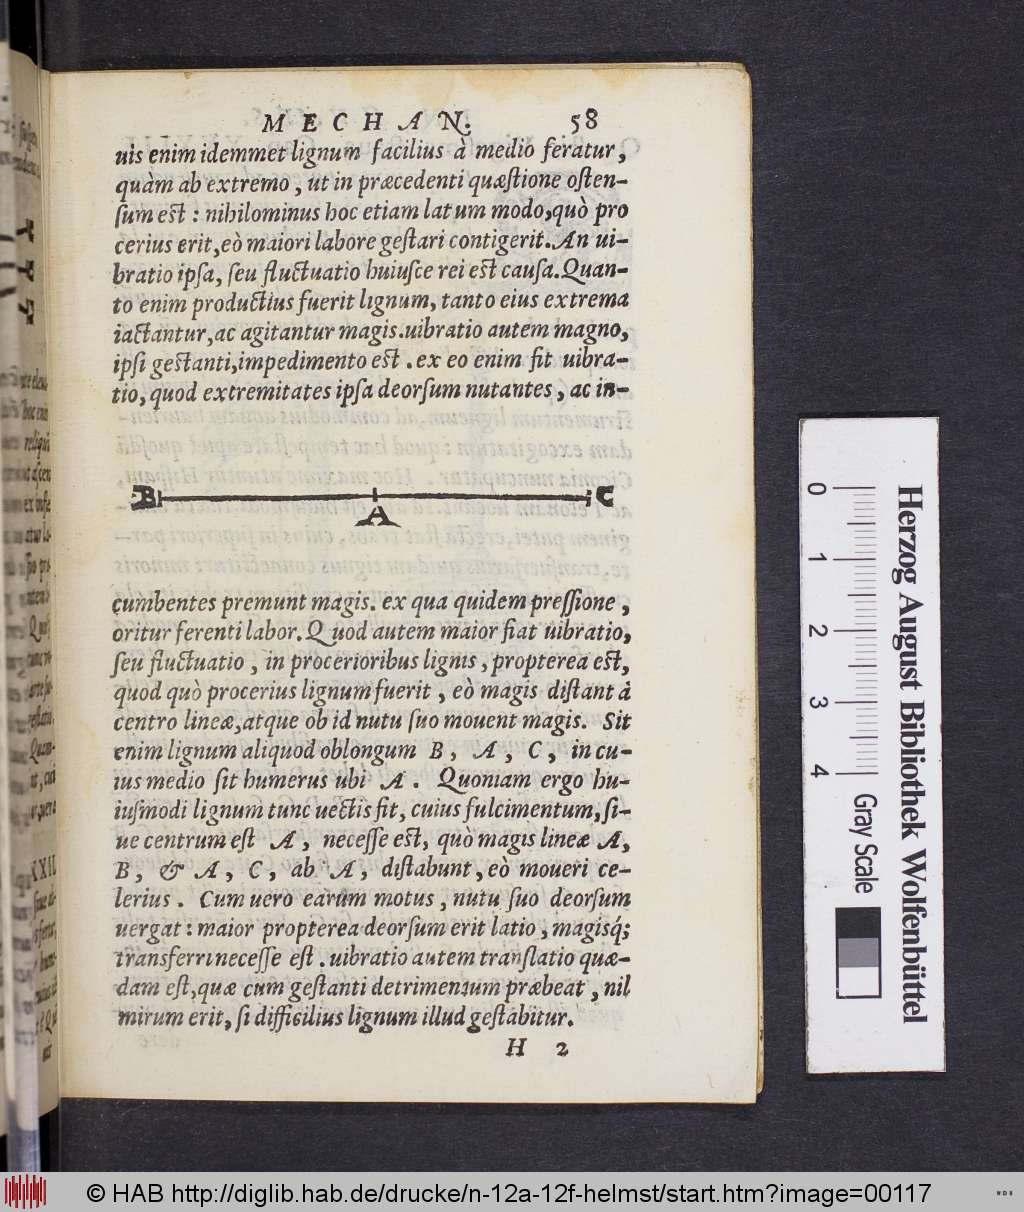 MECHAN. 58
uis enim idemmet lignum facilius à medio feratur,
quàm ab extremo, ut in præcedenti quæſtione oſten-
ſum eſt: nihilominus hoc etiam latum modo, quò pro
cerius erit, eò maiori labore geſtari contigerit. An ui-
bratio ipſa, ſeu fluctuatio huiuſce rei eſt cauſa. Quan-
to enim productius fuerit lignum, tanto eius extrema
iactantur, ac agitantur magis. uibratio autem magno,
ipſi geſtanti, impedimento eſt. ex eo enim fit uibra-
tio, quod extremitates ipſa deorſum nutantes, ac in-
B A C
cumbentes premunt magis. ex qua quidem preſſione,
oritur ferenti labor. Quod autem maior fiat uibratio,
ſeu fluctuatio, in procerioribus lignis, propterea eſt,
quod quò procerius lignum fuerit, eò magis diſtant à
centro lineæ, atque ob id nutu ſuo mouent magis. Sit
enim lignum aliquod oblongum B, A, C, in cu-
ius medio ſit humerus ubi A. Quoniam ergo hu-
iuſmodi lignum tunc uectis fit, cuius fulcimentum, ſi-
ue centrum eſt A, neceſſe eſt, quò magis lineæ A,
B, & A, C, ab A, diſtabunt, eò moueri ce-
lerius. Cum uero earum motus, nutu ſuo deorſum
uergat: maior propterea deorſum erit latio, magisq́;
tranſferri neceſſe eſt. uibratio autem tranſlatio quæ-
dam eſt, quæ cum geſtanti detrimentum præbeat, nil
mirum erit, ſi difficilius lignum illud geſtabitur.
H 2
0 1 2 3 4 Gray Scale
Herzog August Bibliothek Wolfenbüttel
© HAB http://diglib.hab.de/drucke/n-12a-12f-helmst/start.htm?image=00117